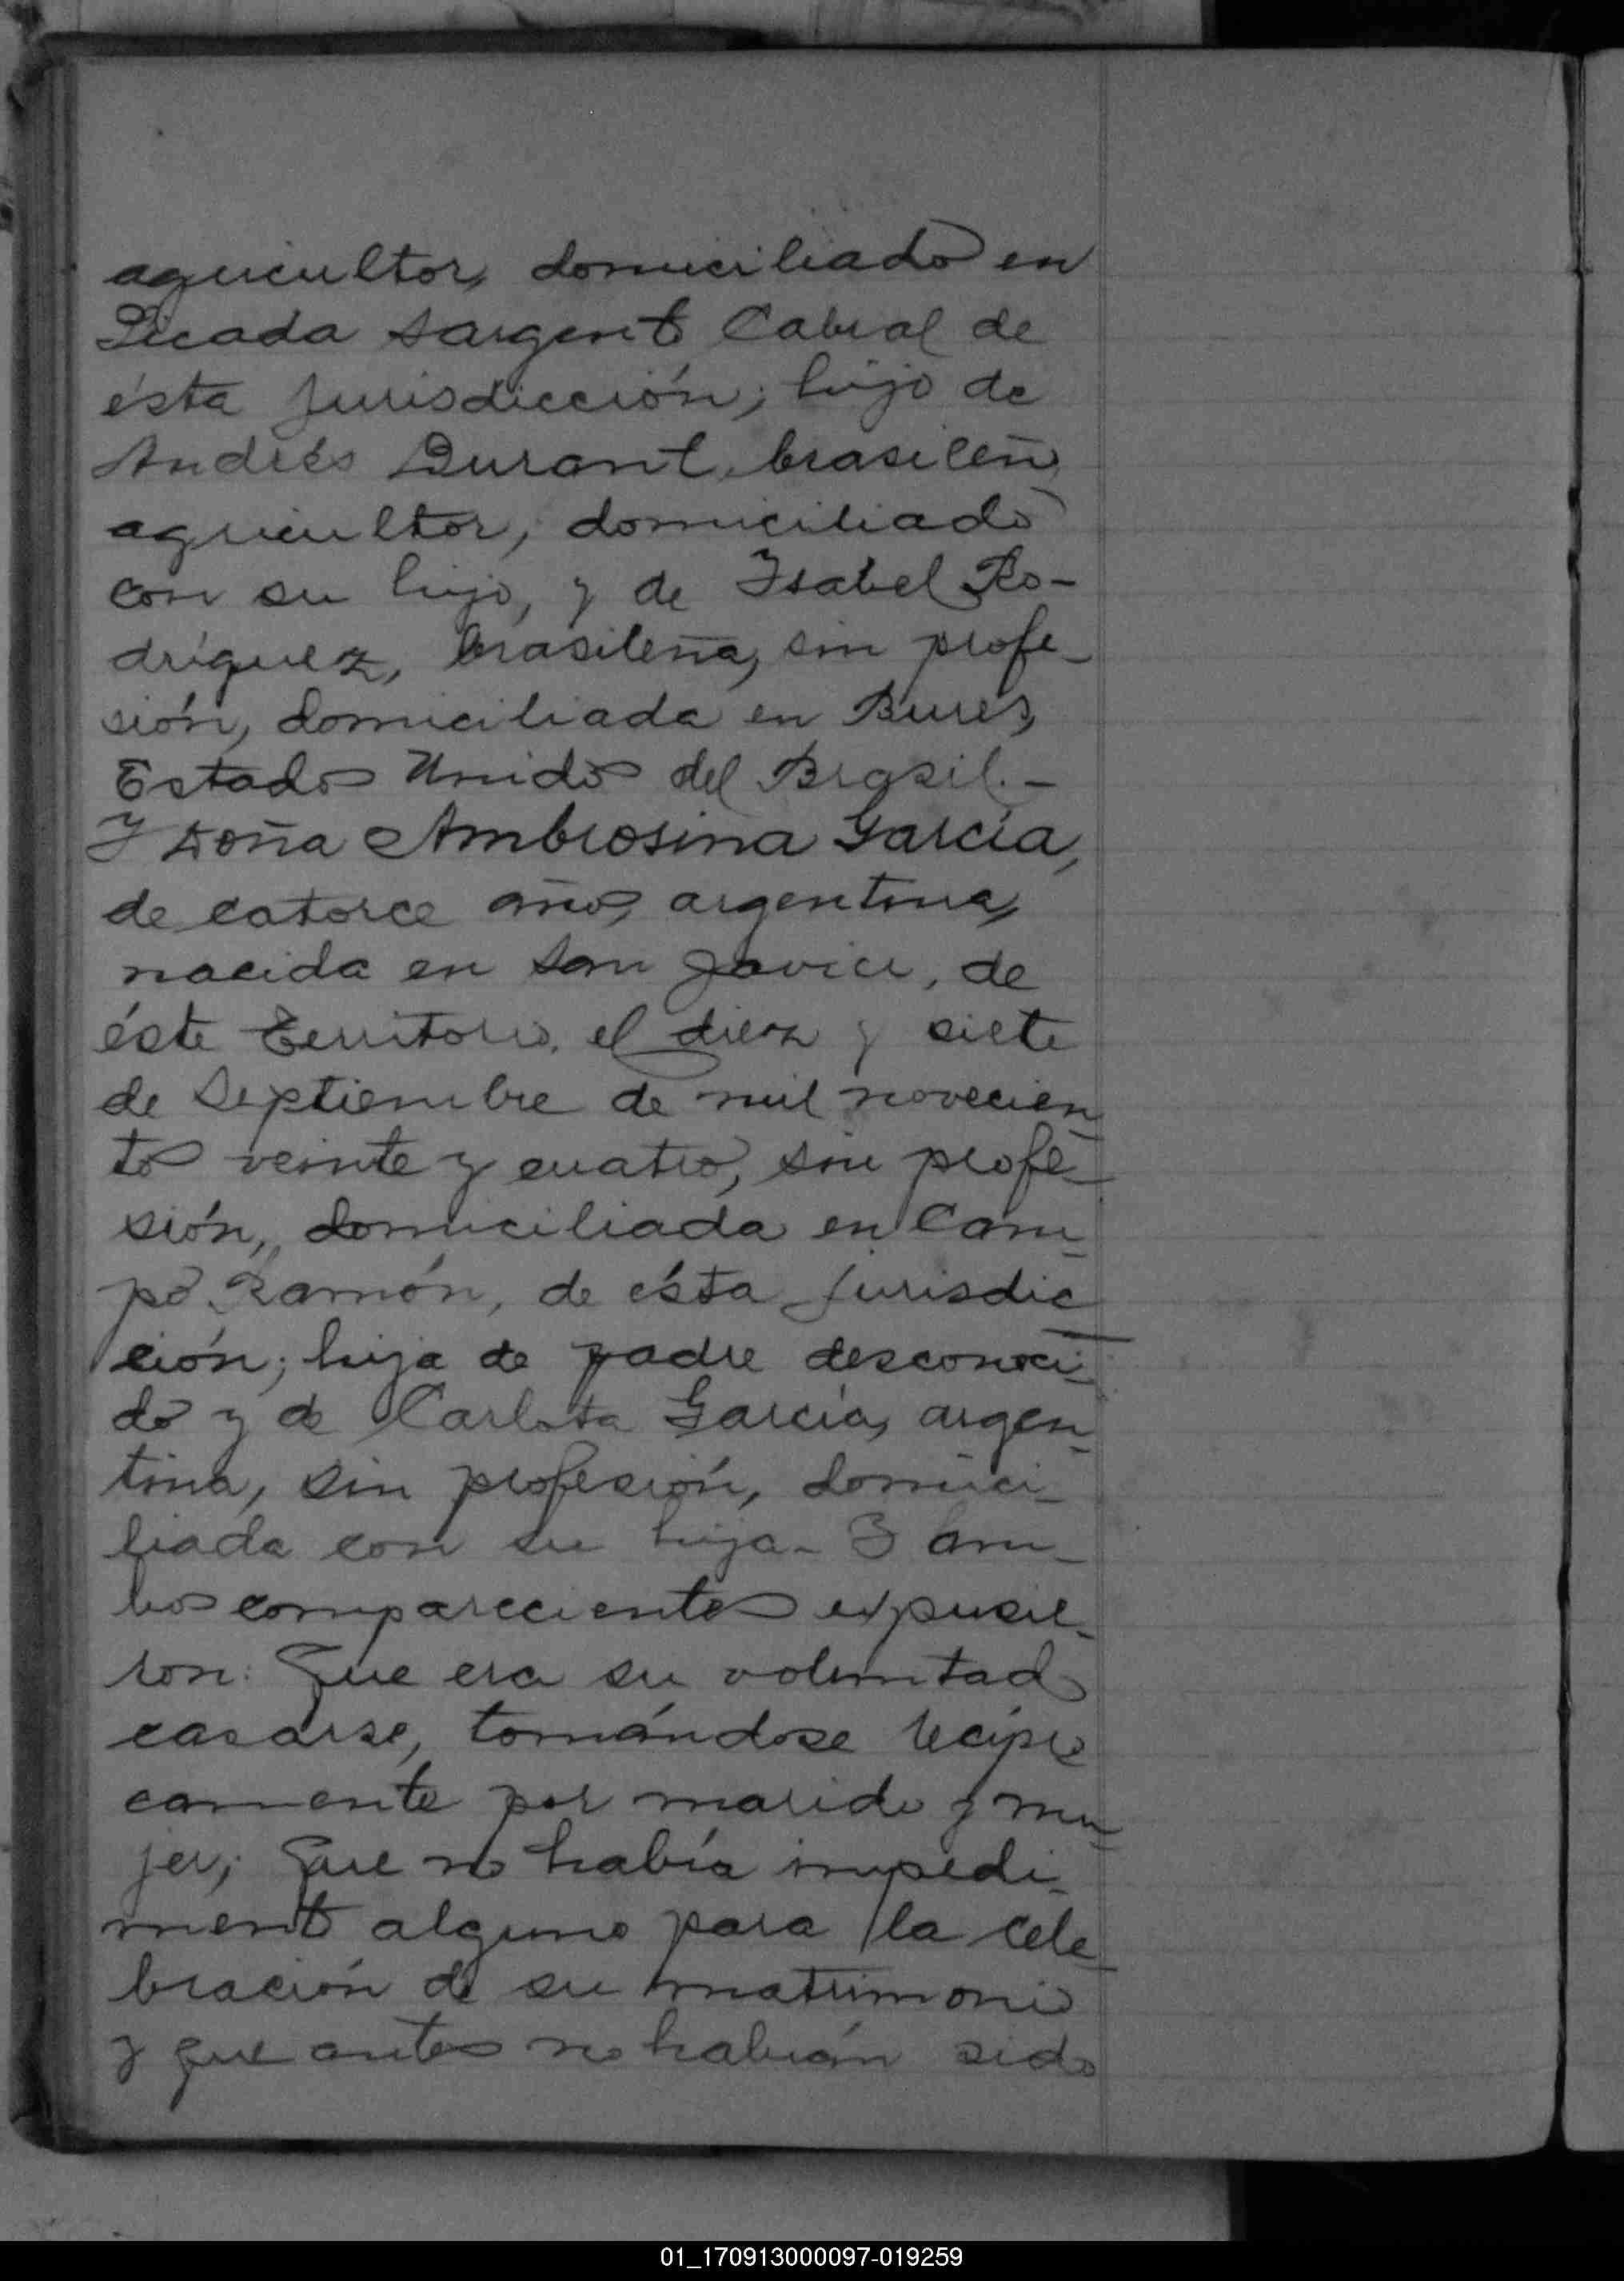 agricultor, domiciliado en
Picada Sargento Cabral de
ésta jurisdicción; hijo de
Andrés Durant, brasileño,
agricultor, domiciliado
con su hijo, y de Isabel Ro-
dríguez, brasileña, sin profe-
sión, domiciliada en
Estados Unidos del Brasil.-
Y Doña Ambrosina García,
de catorce años, argentina,
nacida en San Javier, de
éste Territorio, el diez y siete
de Septiembre de mil novecien-
tos veinte y cuatro, sin profe-
sión, domiciliada en Cam-
po Ramón, de ésta jurisdic-
ción; hija de padre desconoci-
do y de Carlota García, argen-
tina, sin profesión, domici-
liada con su hija.- Y am-
bos comparecientes expusie-
ron: Que era su voluntad
casarse, tomándose recípro
camente por marido y mu-
jer; Que no había impedi-
mento alguno para la cele-
bración de su matrimonio
y que antes no habían sido
01_170913000097-019259